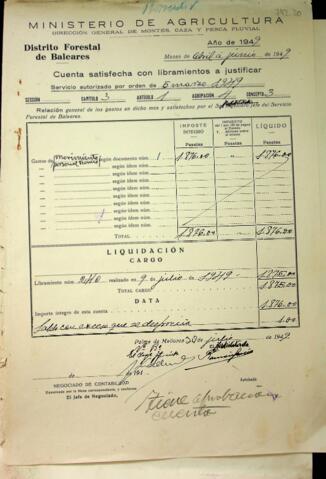 MINISTERIO DE AGRICULTURA
DIRECCIÓN GENERAL DE MONTES, CAZA Y PESCA FLUVIAL
Distrito Forestal
de Baleares
Año de 1949
Meses de abril a junio 1949
Cuenta satisfecha con libramientos a justificar
Servicio autorizado por orden de 5 marzo 1949
SECCIÓN CAPÍTULO 3 ARTÍCULO 1 AGRUPACIÓN CONCEPTO 3
Relación general de los gastos en dicho mes y satisfechos por el Jefe del Servicio
Forestal de Baleares.
IMPORTE ÍNTEGRO
LÍQUIDO
Pesetas Pesetas
Gastos de movimiento personal según documento núm. 1 1876.00 " 1876.00
según ídem núm.
según ídem núm.
según ídem núm.
según ídem núm.
según ídem núm.
según ídem núm.
según ídem núm.
según ídem núm.
TOTAL 1876.00 " 1876.00
LIQUIDACIÓN
CARGO
Libramiento núm. realizado en 9 de julio de 1949 1875.00
TOTAL CARGO 1875.00
DATA
Importe íntegro de esta cuenta 1876.00
Saldo con exceso que se desprecia 1.00
Palma de Mallorca de julio de 1949
Vº Bº
NEGOCIADO DE CONTABILIDAD
El Jefe de Negociado,
Tiene aprobación
cuenta